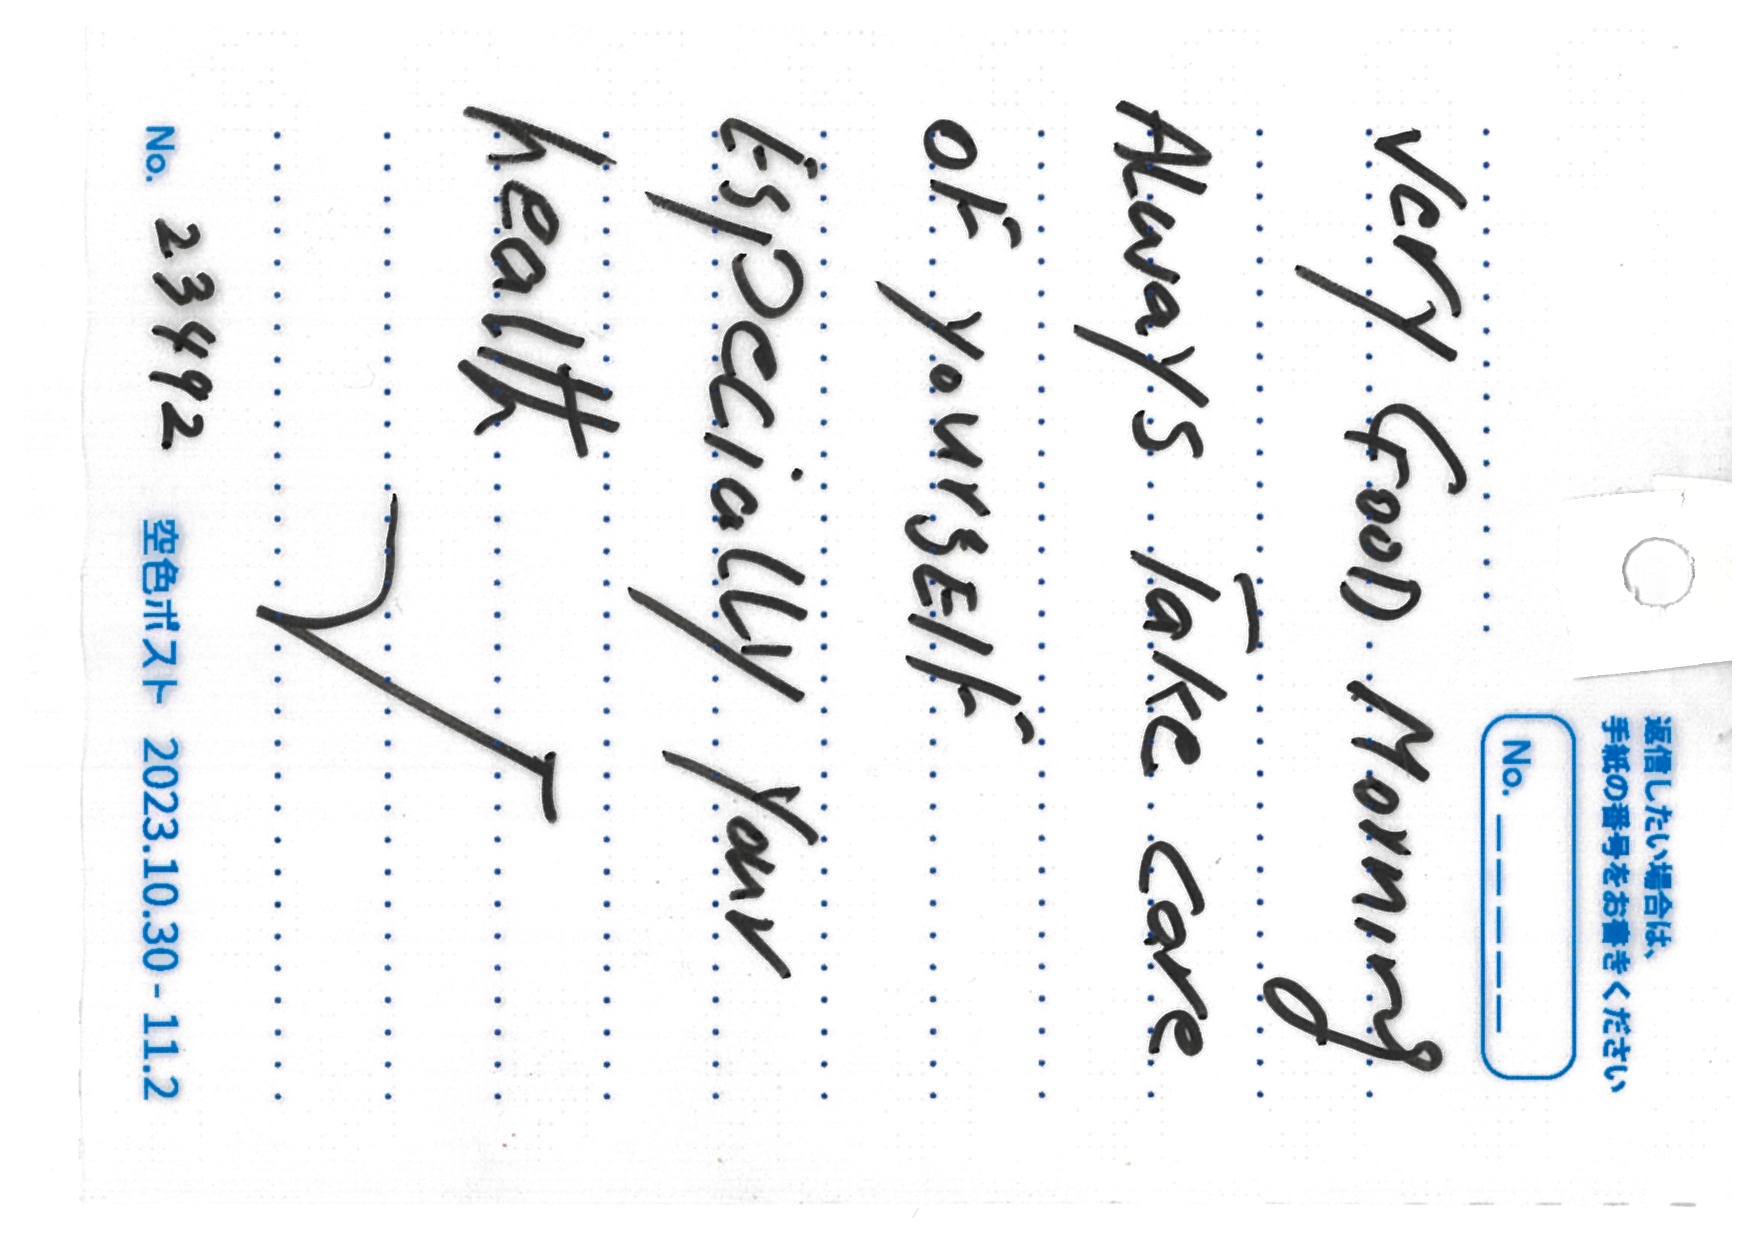 返信したい場合は、
手紙の番号をお書きください
No. _ _ _ _ _
Very GOOD Morning
ALways Take care
oF yoursElF
EspeciaLLy your
health
No. 23492 空色ポスト 2023.10.30 - 11.2